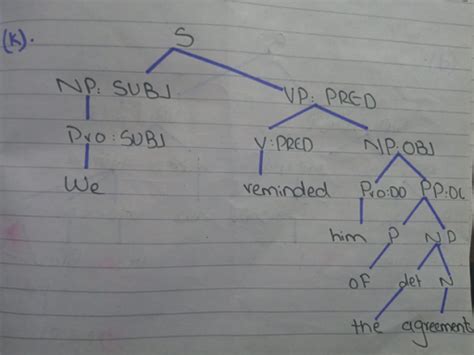 (K).
S
NP: SUBJ VP: PRED
Pro: SUBJ V: PRED NP: OBJ
We reminded Pro: DO PP: OC
him P NP
of det N
the agreement